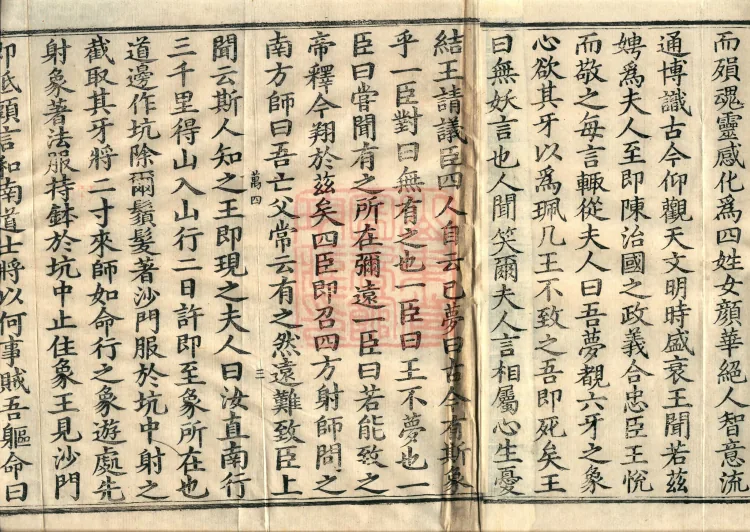 而殞魂靈感化爲四姓女顏華絕人智意流
通博識古今仰觀天文明時盛衰王聞若茲
娉爲夫人至即陳治國之政義合忠臣王悅
而敬之每言輒從夫人曰吾夢覩六牙之象
心欲其牙以爲珮几王不致之吾即死矣王
曰無妖言也人聞笑爾夫人言相屬心生憂
結王請議臣四人自云己夢曰古今有斯象
乎一臣對曰無有之也一臣曰王不夢也一
臣曰甞聞有之所在彌遠一臣曰若能致之
帝釋今翔於茲矣四臣即召四方射師問之
南方師曰吾亡父常云有之然遠難致臣上
萬四 三
聞云斯人知之王即現之夫人曰汝直南行
三千里得山入山行二日許即至象所在也
道邊作坑除爾鬚髮著沙門服於坑中射之
截取其牙將二寸來師如命行之象遊處先
射象著法服持鉢於坑中止住象王見沙門
即低頭言和南道士將以何事賊吾軀命曰